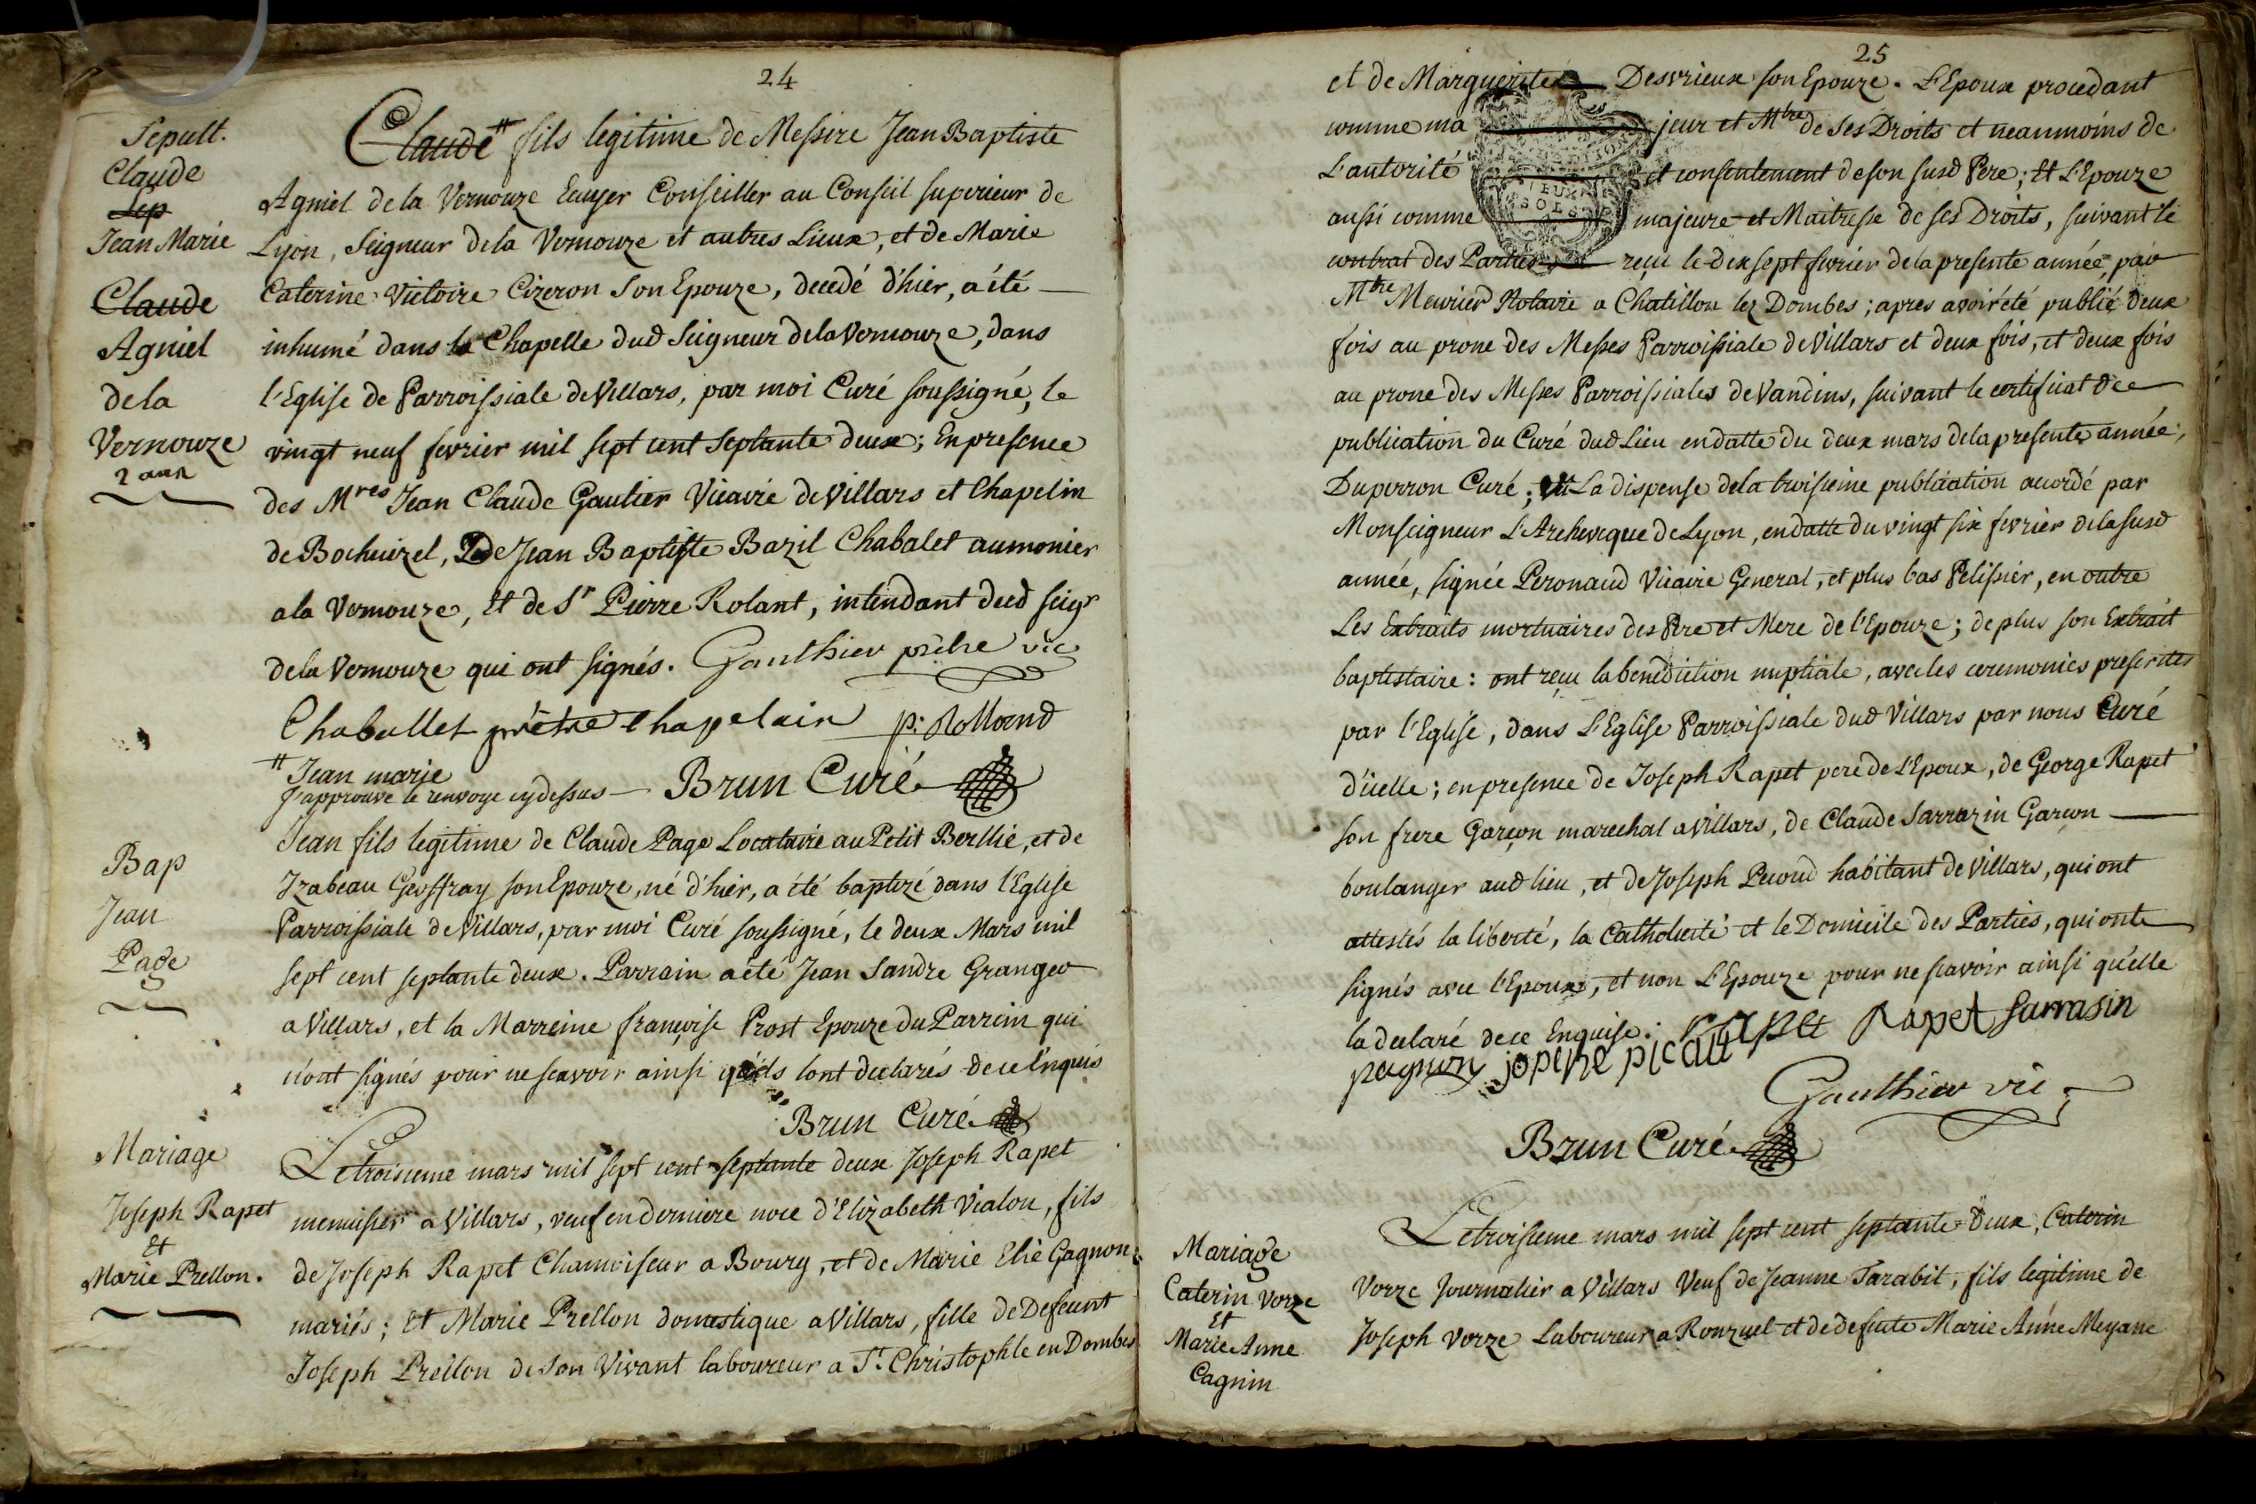 24
Sepult.
Claude
Sep
Jean Marie
Claude
Agniel
de la
Vernouze
2 ans
Claude # fils legitime de Messire Jean Baptiste
Agniel de la Vernouze Ecuyer Conseiller au Conseil superieur de
Lyon, Seigneur de la Vernouze et autres Lieux, et de Marie
Caterine Victoire Cizeron Son Epouze, decedé d'hier, a été
inhumé dans la Chapelle dud Seigneur de la Vernouze, dans
l'Eglise de Parroissiale de Villars, par moi Curé soussigné, le
vingt neuf fevrier mil sept cent septante deux; En presence
des Mres Jean Claude Gautier Vicaire de Villars et Chapelin
de Bochuizel, de Jean Baptiste Bazil Chabalet aumonier
a la Vernouze, Et de Sr Pierre Rolant, intendant dud seigr
de la Vernouze qui ont signés. Gauthier prêtre vic
Chaballet prêtre Chapelain p. Rolland
# Jean marie
J'approuve le renvoye cy dessus — Brun Curé
Bap
Jean
Page
Jean fils legitime de Claude Page Locataire au Petit Berllié, et de
Izabeau Geoffray son Epouze, né d'hier, a été baptizé dans l'Eglise
Parroissiale de Villars, par moi Curé soussigné, le deux Mars mil
sept cent septante deux. Parrain a été Jean Sandre Granger
a Villars, et la Marreine françoise Prost Epouze du Parrein qui
n'ont signés pour ne scavoir ainsi qu'ils l'ont declarés de ce Enquis
Brun Curé
Mariage
Joseph Rapet
Et
Marie Prellon.
Le troisieme mars mil sept cent septante deux Joseph Rapet
menuisier a Villars, veuf en derniere noce d'Elizabeth Vialon, fils
de Joseph Rapet Chamoiseur a Bourg, et de Marie Elie Gagnon
mariés; Et Marie Prellon domestique a Villars, fille de Defeunt
Joseph Prellon de Son Vivant laboureur a St. Christophle en Dombes
25
et de Marguerite Desvrieux son Epouze. L'Epoux procedant
comme ma jeur et Mtre de Ses Droits et neanmoins de
L'autorité et consentement de son susd Pere; Et L'Epouze
aussi comme majeure et Maitresse de ses Droits, suivant le
contrat des Parties reçu le dix sept fevrier de la presente année, par
Mtre Meurier Notaire a Chatillon lez Dombes; apres avoir été publié deux
fois au prone des Messes Parroissiale de Villars et deux fois, et deux fois
au prone des Messes Parroissiales de Vandins, suivant le certificat de
publication du Curé dud Lieu en datte du deux mars de la presente année,
Duperron Curé; vu La dispense de la troisieme publication accordé par
Monseigneur L'Archeveque de Lyon, en datte du vingt six fevrier de la susd
année, signée Peronaud Vicaire General, et plus bas Pelissier, en outre
Les Extraits mortuaires des Pere et Mere de l'Epouze; de plus son Extrait
baptistaire: ont reçu la benediction nuptiale, avec les ceremonies prescrites
par l'Eglise, dans L'Eglise Parroissiale dud Villars par nous Curé
d'icelle; en presence de Joseph Rapet pere de L'Epoux, de George Rapet
son frere Garçon marechal a Villars, de Claude Sarrazin Garçon
boulanger aud lieu, et de Joseph Picoud habitant de Villars, qui ont
attestés la liberté, la Catholicité et le Domicile des Parties, qui ont
signés avec l'Epoux, et non L'Epouze pour ne scavoir ainsi qu'elle
la declaré de ce Enquise. rapet Rapet Sarrasin
joseph picaud
Gauthier vic
Brun Curé
Mariage
Caterin Vorze
Et
Marie Anne
Cagnin
Le troisieme mars mil sept cent septante deux, Caterin
Vorze Journalier a Villars Veuf de Jeanne Tarabit, fils legitime de
Joseph Vorze Laboureur a Ronzuel et de defunte Marie Anne Meyane